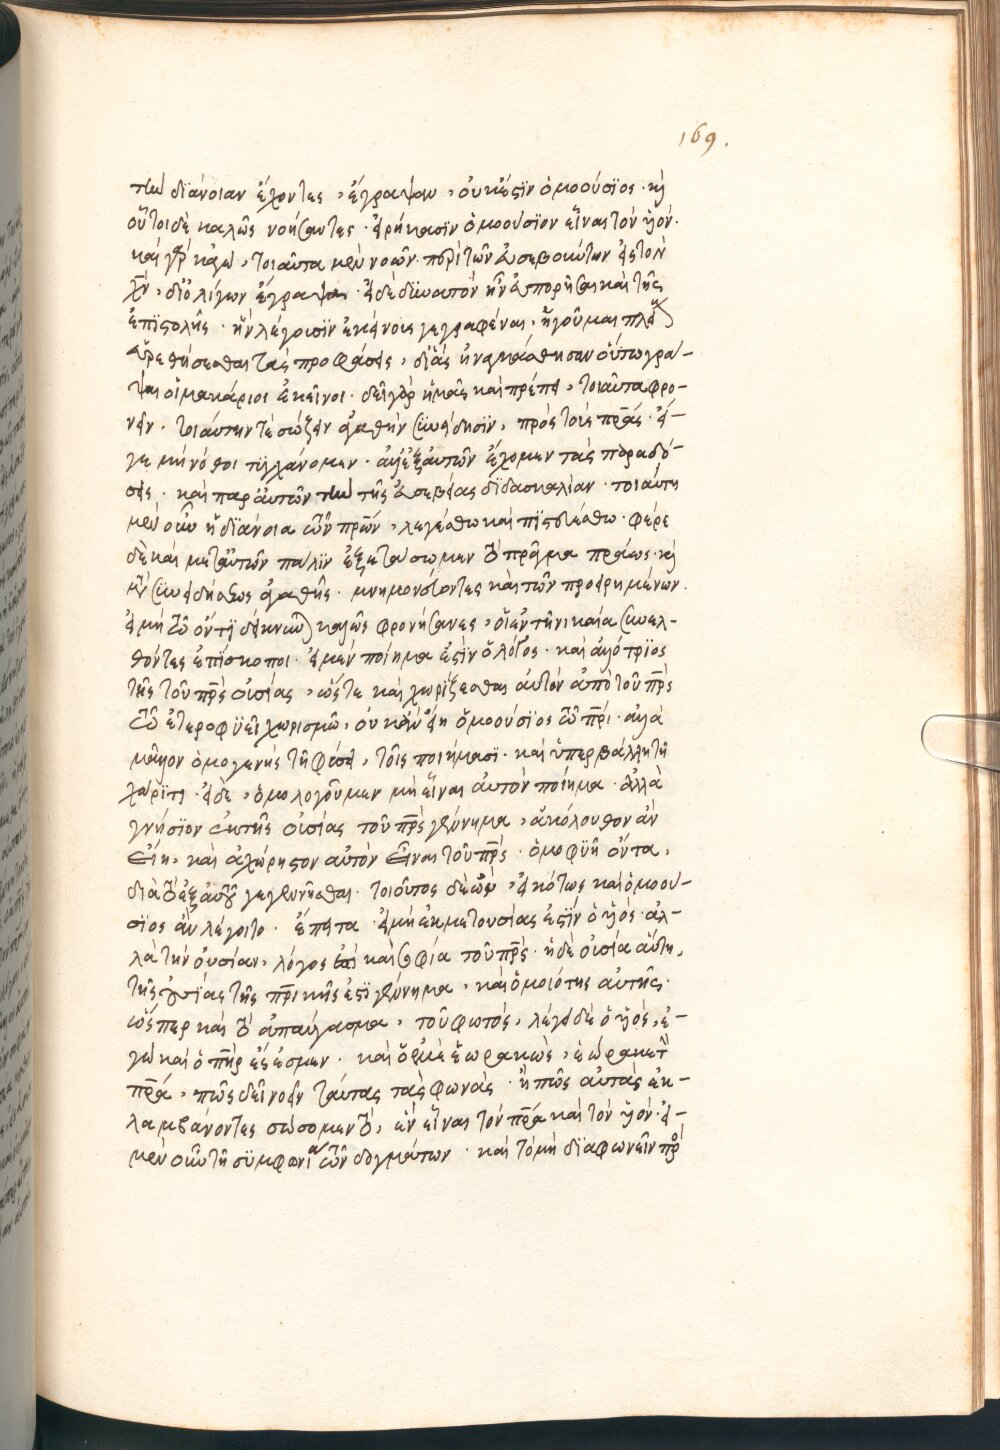 τὴν διάνοιαν ἔχοντες, ἔγραψαν, οὐκ ἔστιν ὁμοούσιος· κỳ
οὗτοι δὲ καλῶς νοήσαντες· εἰρήκασιν ὁμοούσιον εἶναι τὸν ὑόν·
καὶ γὰρ κἀγὼ, τοιαῦτα μὲν νοῶν· περὶ τῶν εὐσεβούντων εἰς τὸν
χν̄, δι᾽ ὀλίγων ἔγραψα· εἰ δὲ δυνατὸν ἦν εὐπορῆσαι καὶ τῆς
ἐπιστολῆς· ἣν λέγουσιν ἐκείνους γεγραφέναι, ἡγοῦμαι πλεί
εὑρεθήσεσθαι τὰς προφάσεις, δι᾽ ἃς ἠναγκάσθησαν οὕτω γρά-
ψαι οἱ μακάριοι ἐκεῖνοι· δεῖ γὰρ ἡμᾶς καὶ πρέπει, τοιαῦτα φρο-
νεῖν· τοιαύτην τὲ σώζειν ἀγαθὴν συνείδησιν, πρὸς τοὺς πρ̄ας· εἴ-
γε μὴ νόθοι τυγχάνομεν· ἀλλ᾽ ἐξ αὐτῶν ἔχομεν τὰς παραδό-
σεις· καὶ παρ᾽ αὐτῶν τὴν τῆς εὐσεβείας διδασκαλίαν· τοιαύτη
μὲν οὖν ἡ διάνοια τῶν πρ̄ων, λεγέσθω καὶ πιστευέσθω· φέρε
δὲ καὶ μετ᾽ αὐτῶν πάλιν ἐξετάσωμεν τὸ πρᾶγμα πράως· κỳ
μετὰ συνειδήσεως ἀγαθῆς· μνημονεύοντες καὶ τῶν προειρημένων·
εἰ μὴ τῷ ὄντι δεικνύων) καλῶς φρονήσαντες, οἱ ἐν τηνικαῖα συνελ-
θόντες ἐπίσκοποι· εἰ μὲν ποίημα ἐστὶν ὁ λόγος· καὶ ἀλλότριος
τῆς τοῦ πρ̄ς οὐσίας, ὥστε καὶ χωρίζεσθαι αὐτὸν ἀπὸ τοῦ πρ̄ς
τῷ ἑτεροφυεῖ χωρισμῶ, οὐκ ἂν εἴη ὁμοούσιος τῷ πρ̄ι· ἀλλὰ
μᾶλλον ὁμογενὴς τῇ φύσει, τοῖς ποιήμασι· καὶ ὑπερβάλλη τῇ
χάριτι· εἰ δὲ, ὁμολογοῦμεν μὴ εἶναι αὐτὸν ποίημα· ἀλλὰ
γνήσιον ἐκ τῆς οὐσίας τοῦ πρ̄ς γέννημα, ἀκόλουθον ἂν
εἴη, καὶ ἀχώριστον αὐτὸν εἶναι τοῦ πρ̄ς· ὁμοφυῆ ὄντα,
διὰ τὸ ἐξ αὐτοῦ γεγεννῆσθαι· τοιοῦτος δὲ ὢν, εἰκότως καὶ ὁμοού-
σιος ἂν λέγοιτο· ἔπειτα· εἰ μὴ ἐκ μετουσίας ἐστὶν ὁ ὑὸς· ἀλ-
λὰ τὴν οὐσίαν, λόγος ἐστὶ καὶ σοφία τοῦ πρ̄ς· ἡ δὲ οὐσία αὕτη,
τῆς οὐσίας τῆς πρ̄ικῆς ἐστὶ γέννημα, καὶ ὁμοιότης αὐτῆς·
ὥσπερ καὶ τὸ ἀπαύγασμα, τοῦ φωτός, λέγει δὲ ὁ ὑὸς, ἐ-
γὼ καὶ ὁ πη̄ρ ἕν ἐσμεν· καὶ ὁ ἐμὲ ἑωρακὼς, ἑώρακε τὸν
πρ̄α, πῶς δεῖ νοεῖν ταύτας τὰς φωνὰς· ἢ πῶς αὐτὰς ἐκ-
λαμβάνοντες σώσομεν τὸ, ἓν εἶναι τὸν πρ̄α καὶ τὸν ὑόν· εἰ-
μὲν οὖν τῇ συμφωνίᾳ τῶν δογμάτων· καὶ τὸ μὴ διαφωνεῖν πρὸ
169.